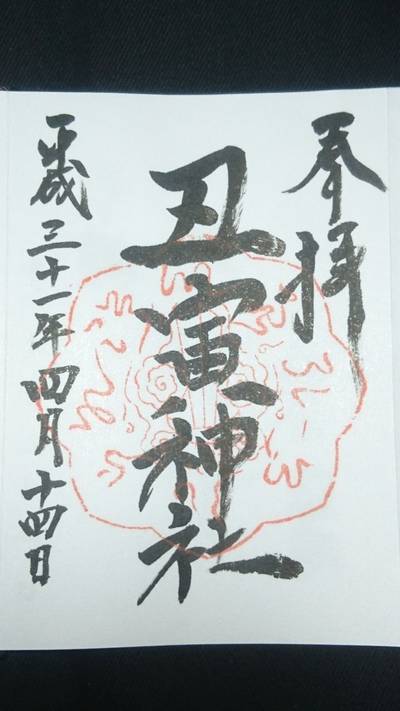 奉拝
丑寅神社
平成三十一年四月十四日